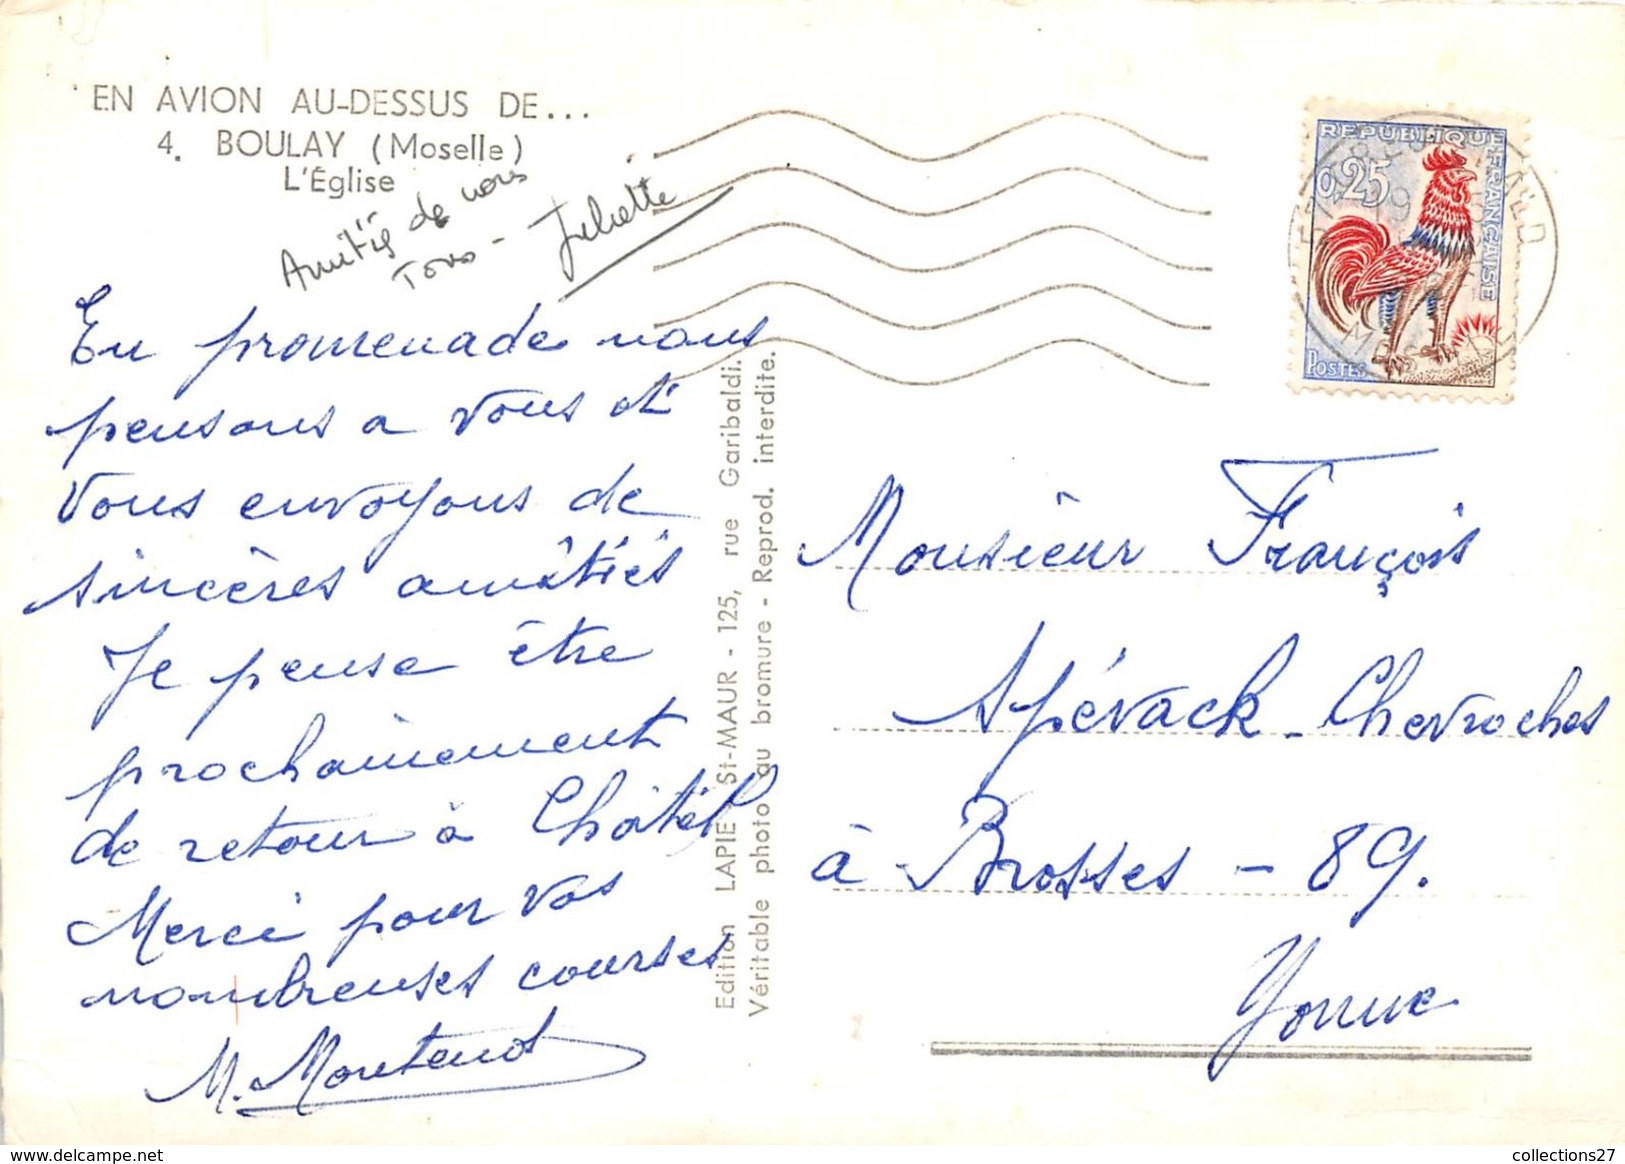 EN AVION AU-DESSUS DE...
4. BOULAY (Moselle)
L'Église
Amitiés de nous
Tous - Juliette
En promenade nous
pensons a vous et
Vous envoyons de
sincères amitiés
Je pense être
prochainement
de retour à Châtel
Merci pour vos
nombreuses courses
M.
Edition LAPIE St-MAUR - 125, rue Garibaldi.
Véritable photo au bromure - Reprod. interdite.
REPUBLIQUE FRANÇAISE
0,25
POSTES
Monsieur François
Spévack - Chevroches
à Brosses - 89.
Yonne
collections27
delcampe.net